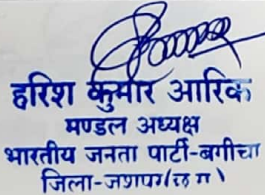 हरिश कुमार आरिक
मण्डल अध्यक्ष
भारतीय जनता पार्टी-बगीचा
जिला-जशपुर(छ ग)